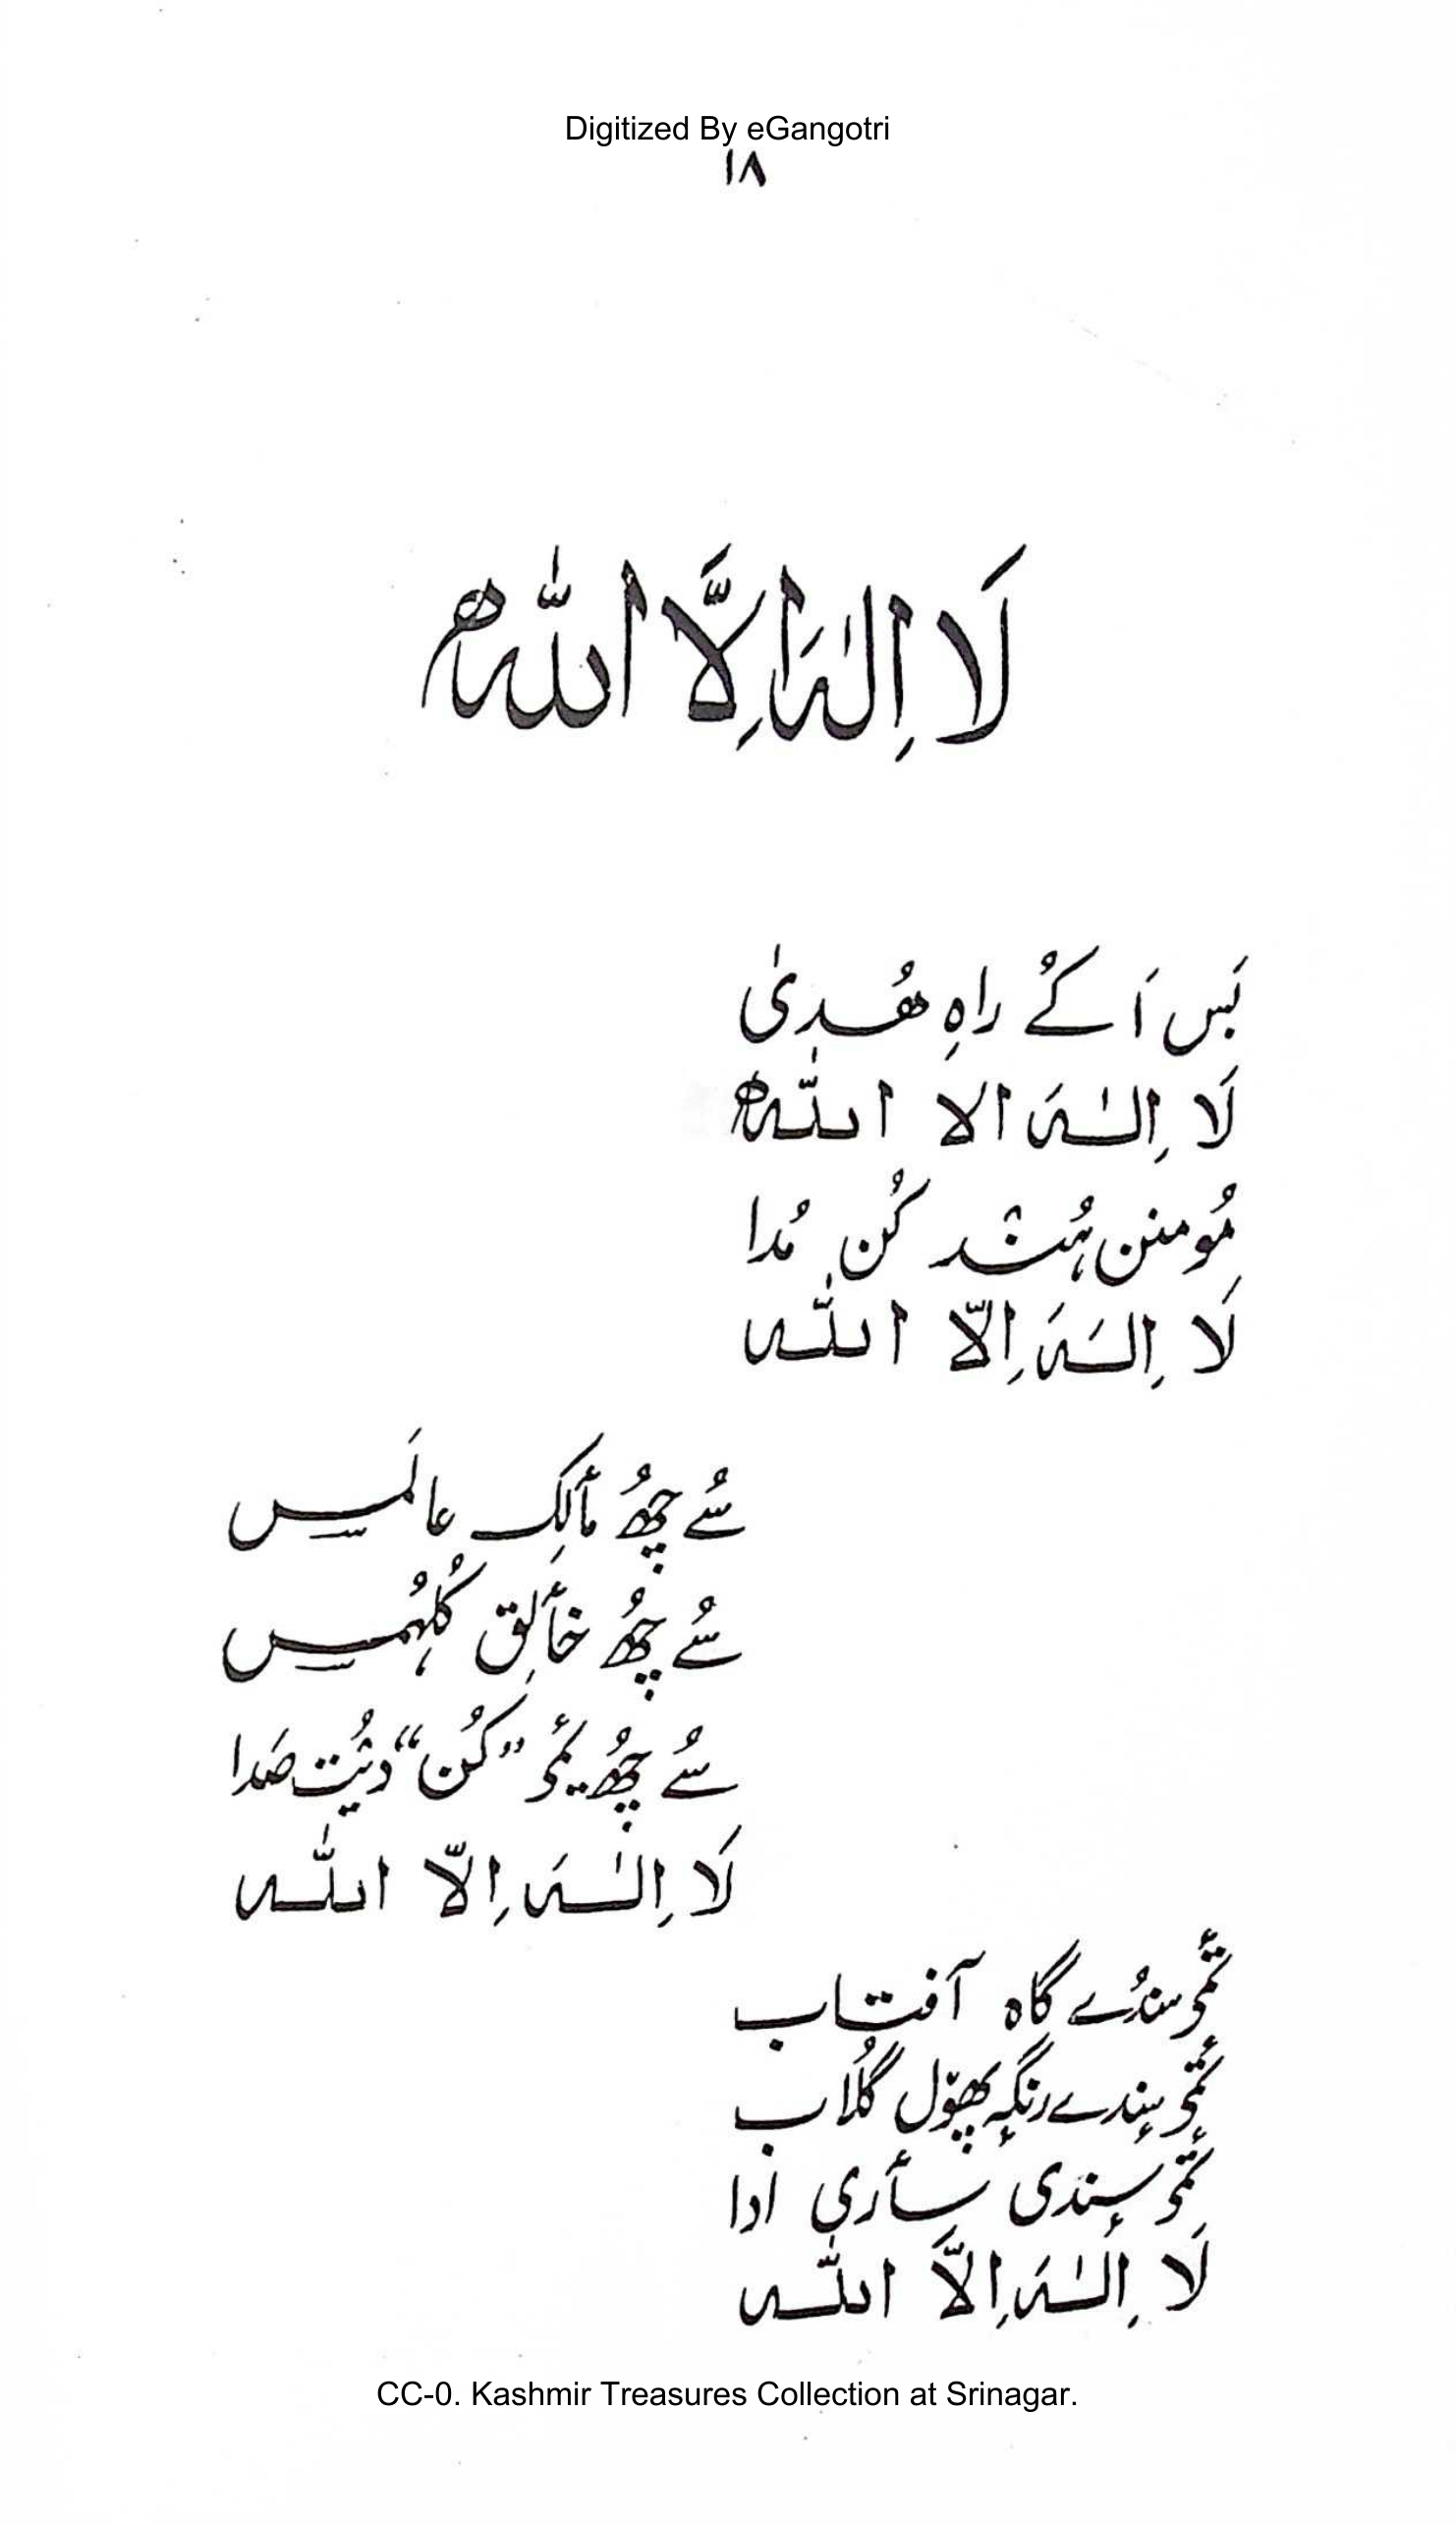 Digitized By eGangotri
۱۸
لَا اِلٰہَ اِلَّا اللّٰہ
بَس اَکُے راہِ ھُدیٰ
لَا اِلٰہَ الا اللّٰہ
مُومنن ہُنٛد کُن مُدا
لَا اِلٰہَ اِلّا اللّٰہ
سُے چھُ مٲلِک عالمَس
سُے چھُ خٲلِق کُلہُمس
سُے چھُ یٔمۍ ”کُن“ دیُت صَدا
لَا اِلٰہَ اِلّا اللّٰہ
تٔمۍ سندُے گاہ آفتاب
تٔمۍ سٕندے رنگہٕ پھۆل گُلاب
تٔمۍ سٕندی سٲری ادا
لَا اِلٰہَ اِلَّا اللّٰہ
CC-0. Kashmir Treasures Collection at Srinagar.